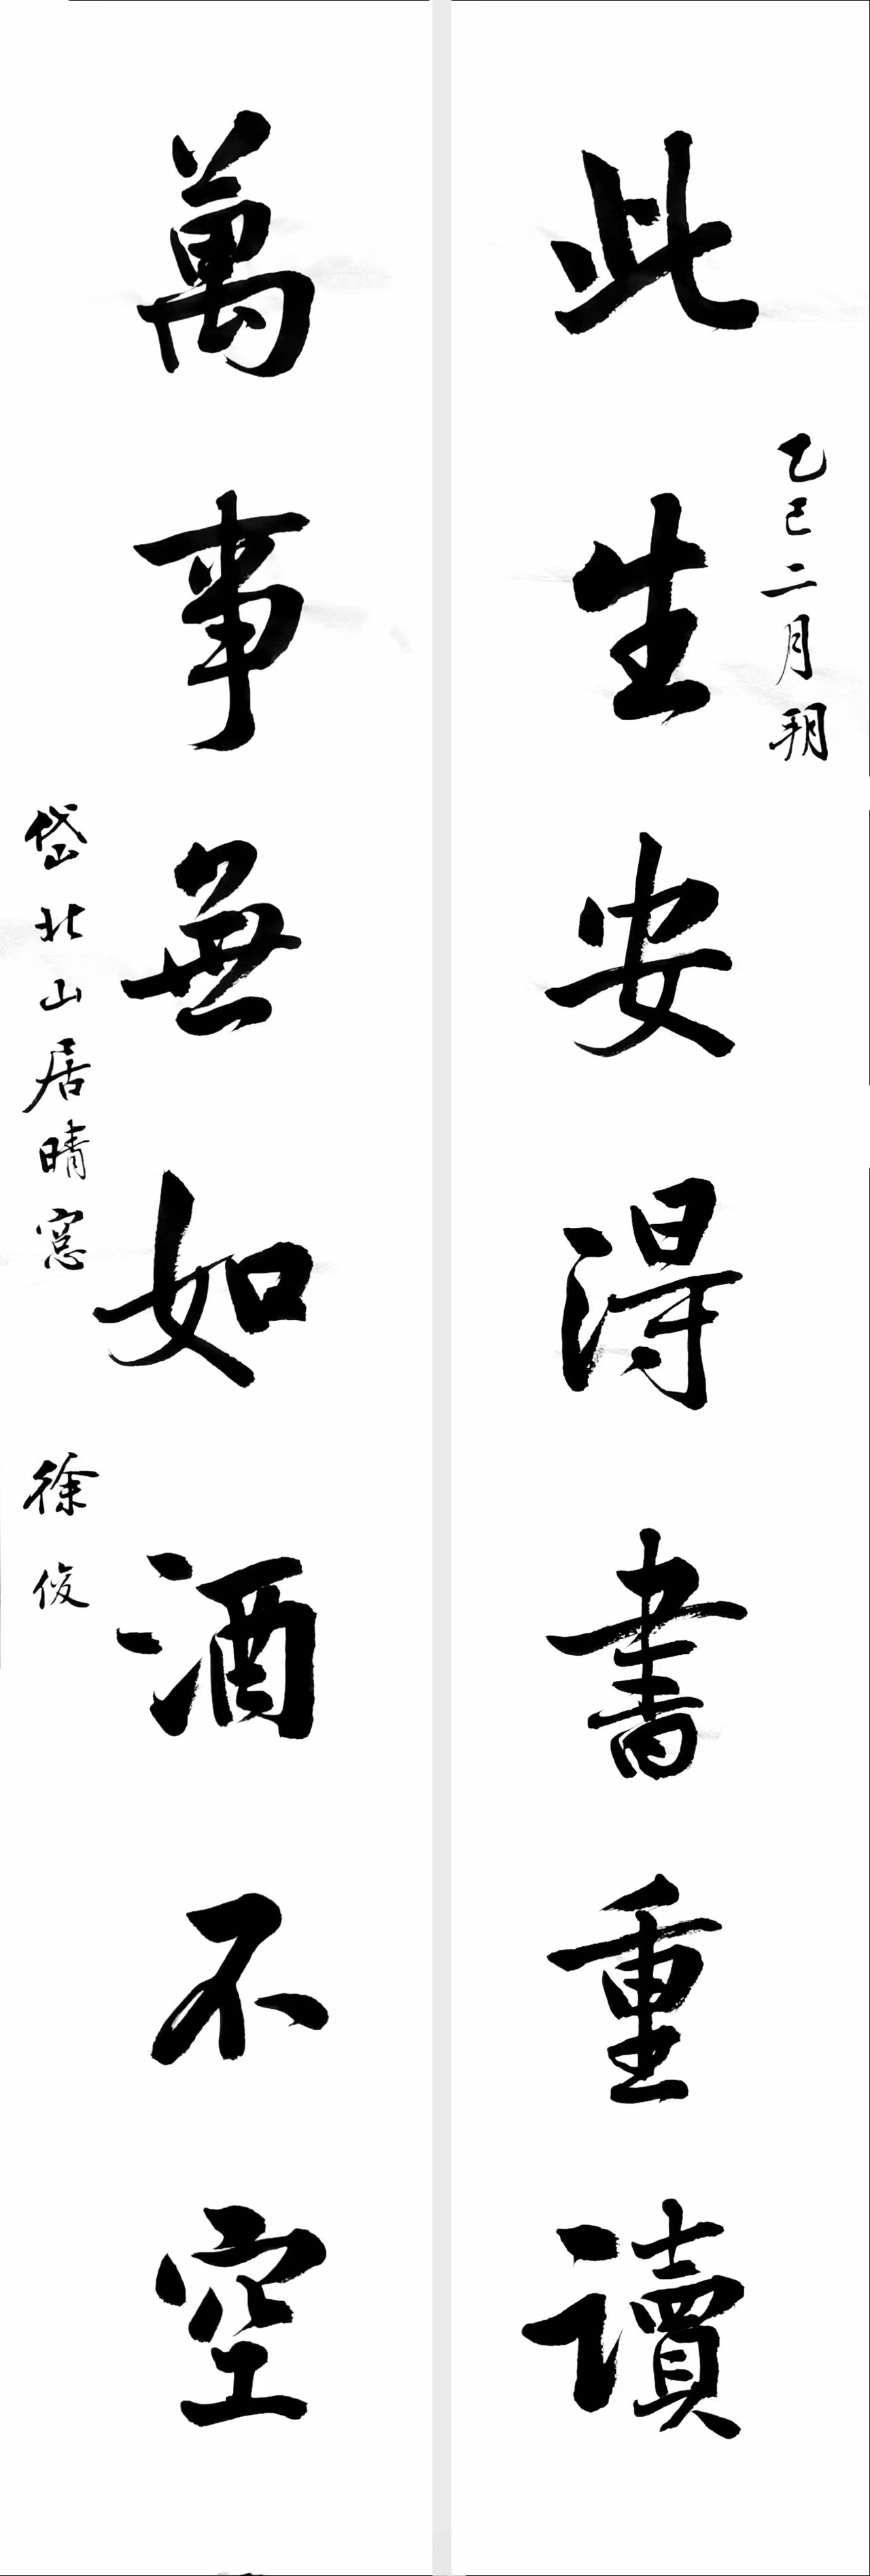 此生安得書重讀
乙巳二月朔
萬事無如酒不空
岱北山居晴窓
徐俊